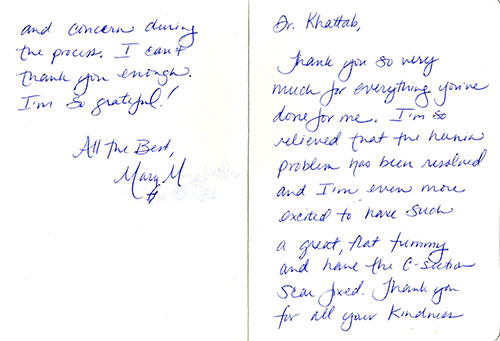 Dr. Khattab,
Thank you so very
much for everything you've
done for me. I'm so
relieved that the hernia
problem has been resolved
and I'm even more
excited to have such
a great, flat tummy
and have the C-section
scar fixed. Thank you
for all your kindness
and concern during
the process. I can't
thank you enough.
I'm so grateful!
All the Best,
Mary M